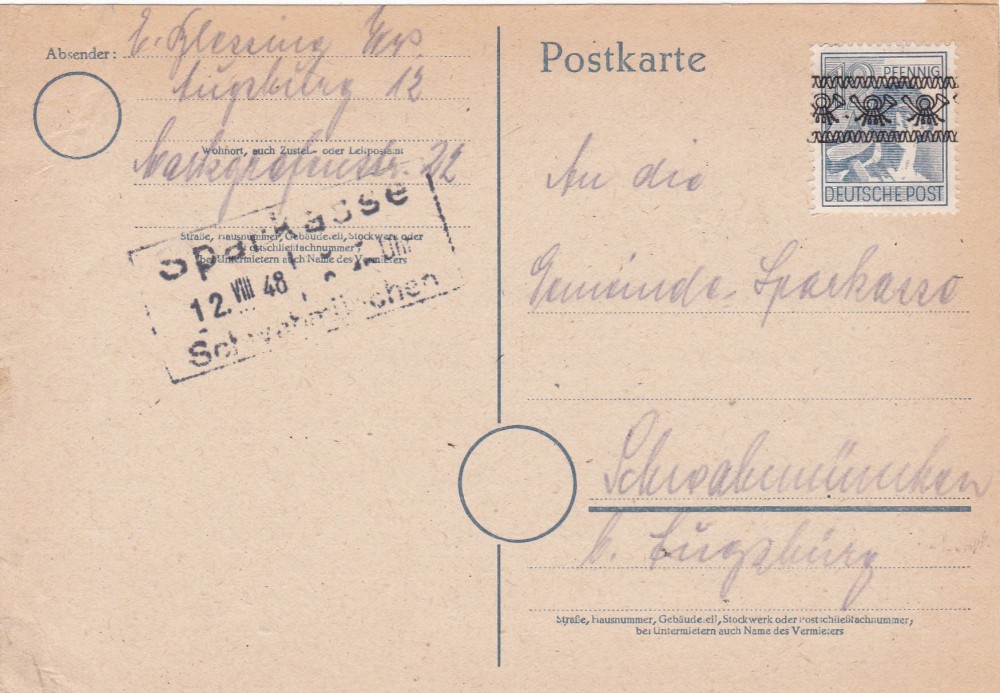 Absender: E. Blessing
Augsburg 12
Wohnort, auch Zustell- oder Leitpostamt
Markgrafenstr. 22
Straße, Hausnummer, Gebäudeteil, Stockwerk oder
Postschließfachnummer;
bei Untermietern auch Name des Vermieters
Sparkasse
12. VIII 48
Schwabmünchen
Postkarte
12 PFENNIG
DEUTSCHE POST
An die
Gemeinde-Sparkasse
Schwabmünchen
b. Augsburg
Straße, Hausnummer, Gebäudeteil, Stockwerk oder Postschließfachnummer;
bei Untermietern auch Name des Vermieters